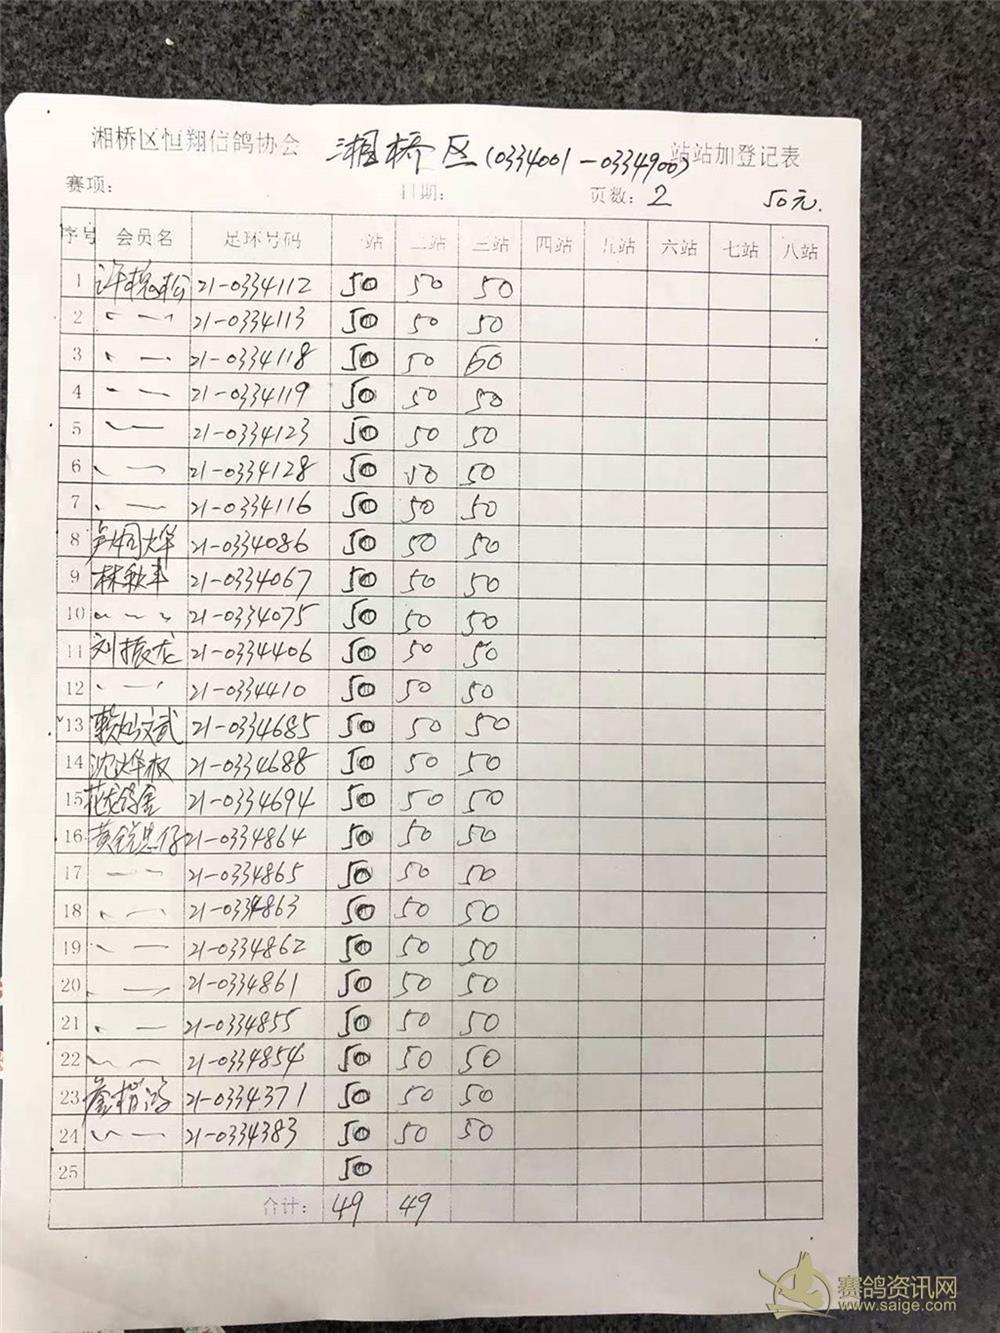 湘桥区恒翔信鸽协会 湘桥区(0334001-0334900) 站站加登记表
赛项: 日期: 页数: 2 50元.
序号 会员名 足环号码 一站 二站 三站 四站 五站 六站 七站 八站
1 21-0334112 50 50 50
2 21-0334113 50 50 50
3 21-0334118 50 50 50
4 21-0334119 50 50 50
5 21-0334123 50 50 50
6 21-0334128 50 50 50
7 21-0334116 50 50 50
8 21-0334086 50 50 50
9 林秋丰 21-0334067 50 50 50
10 21-0334075 50 50 50
11 刘振龙 21-0334406 50 50 50
12 21-0334410 50 50 50
13 21-0334685 50 50 50
14 沈烨权 21-0334688 50 50 50
15 21-0334694 50 50 50
16 21-0334864 50 50 50
17 21-0334865 50 50 50
18 21-0334863 50 50 50
19 21-0334862 50 50 50
20 21-0334861 50 50 50
21 21-0334855 50 50 50
22 21-0334854 50 50 50
23 21-0334371 50 50 50
24 21-0334383 50 50 50
25 50
合计: 49 49
赛鸽资讯网
www.saige.com